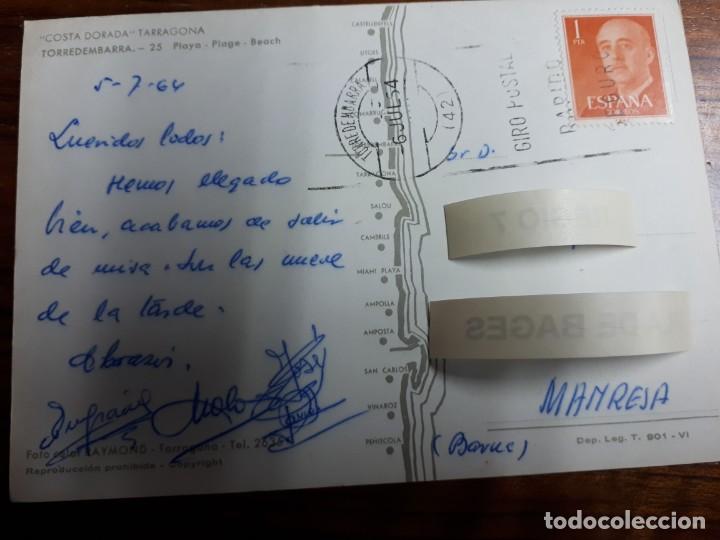 "COSTA DORADA" TARRAGONA
TORREDEMBARRA. - 25 Playa - Plage - Beach
5-7-64
Queridos todos:
Hemos llegado
bien, acabamos de salir
de misa. Son las nueve
de la tarde.
Abrazos.
José
Foto color RAYMOND - Tarragona - Tel.
Reproducción prohibida - Copyright
CASTELLDEFELS
SITGES
TARRAGONA
SALOU
CAMBRILS
MIAMI PLAYA
AMPOLLA
AMPOSTA
SAN CARLOS
VINAROZ
PEÑISCOLA
TORREDEMBARRA
6 JUL 64
(42)
GIRO POSTAL
RAPIDO
1
PTA
ESPAÑA
CORREOS
Sr. D.
MANRESA
(Barna)
Dep. Leg. T. 901 - VI
todocoleccion.net